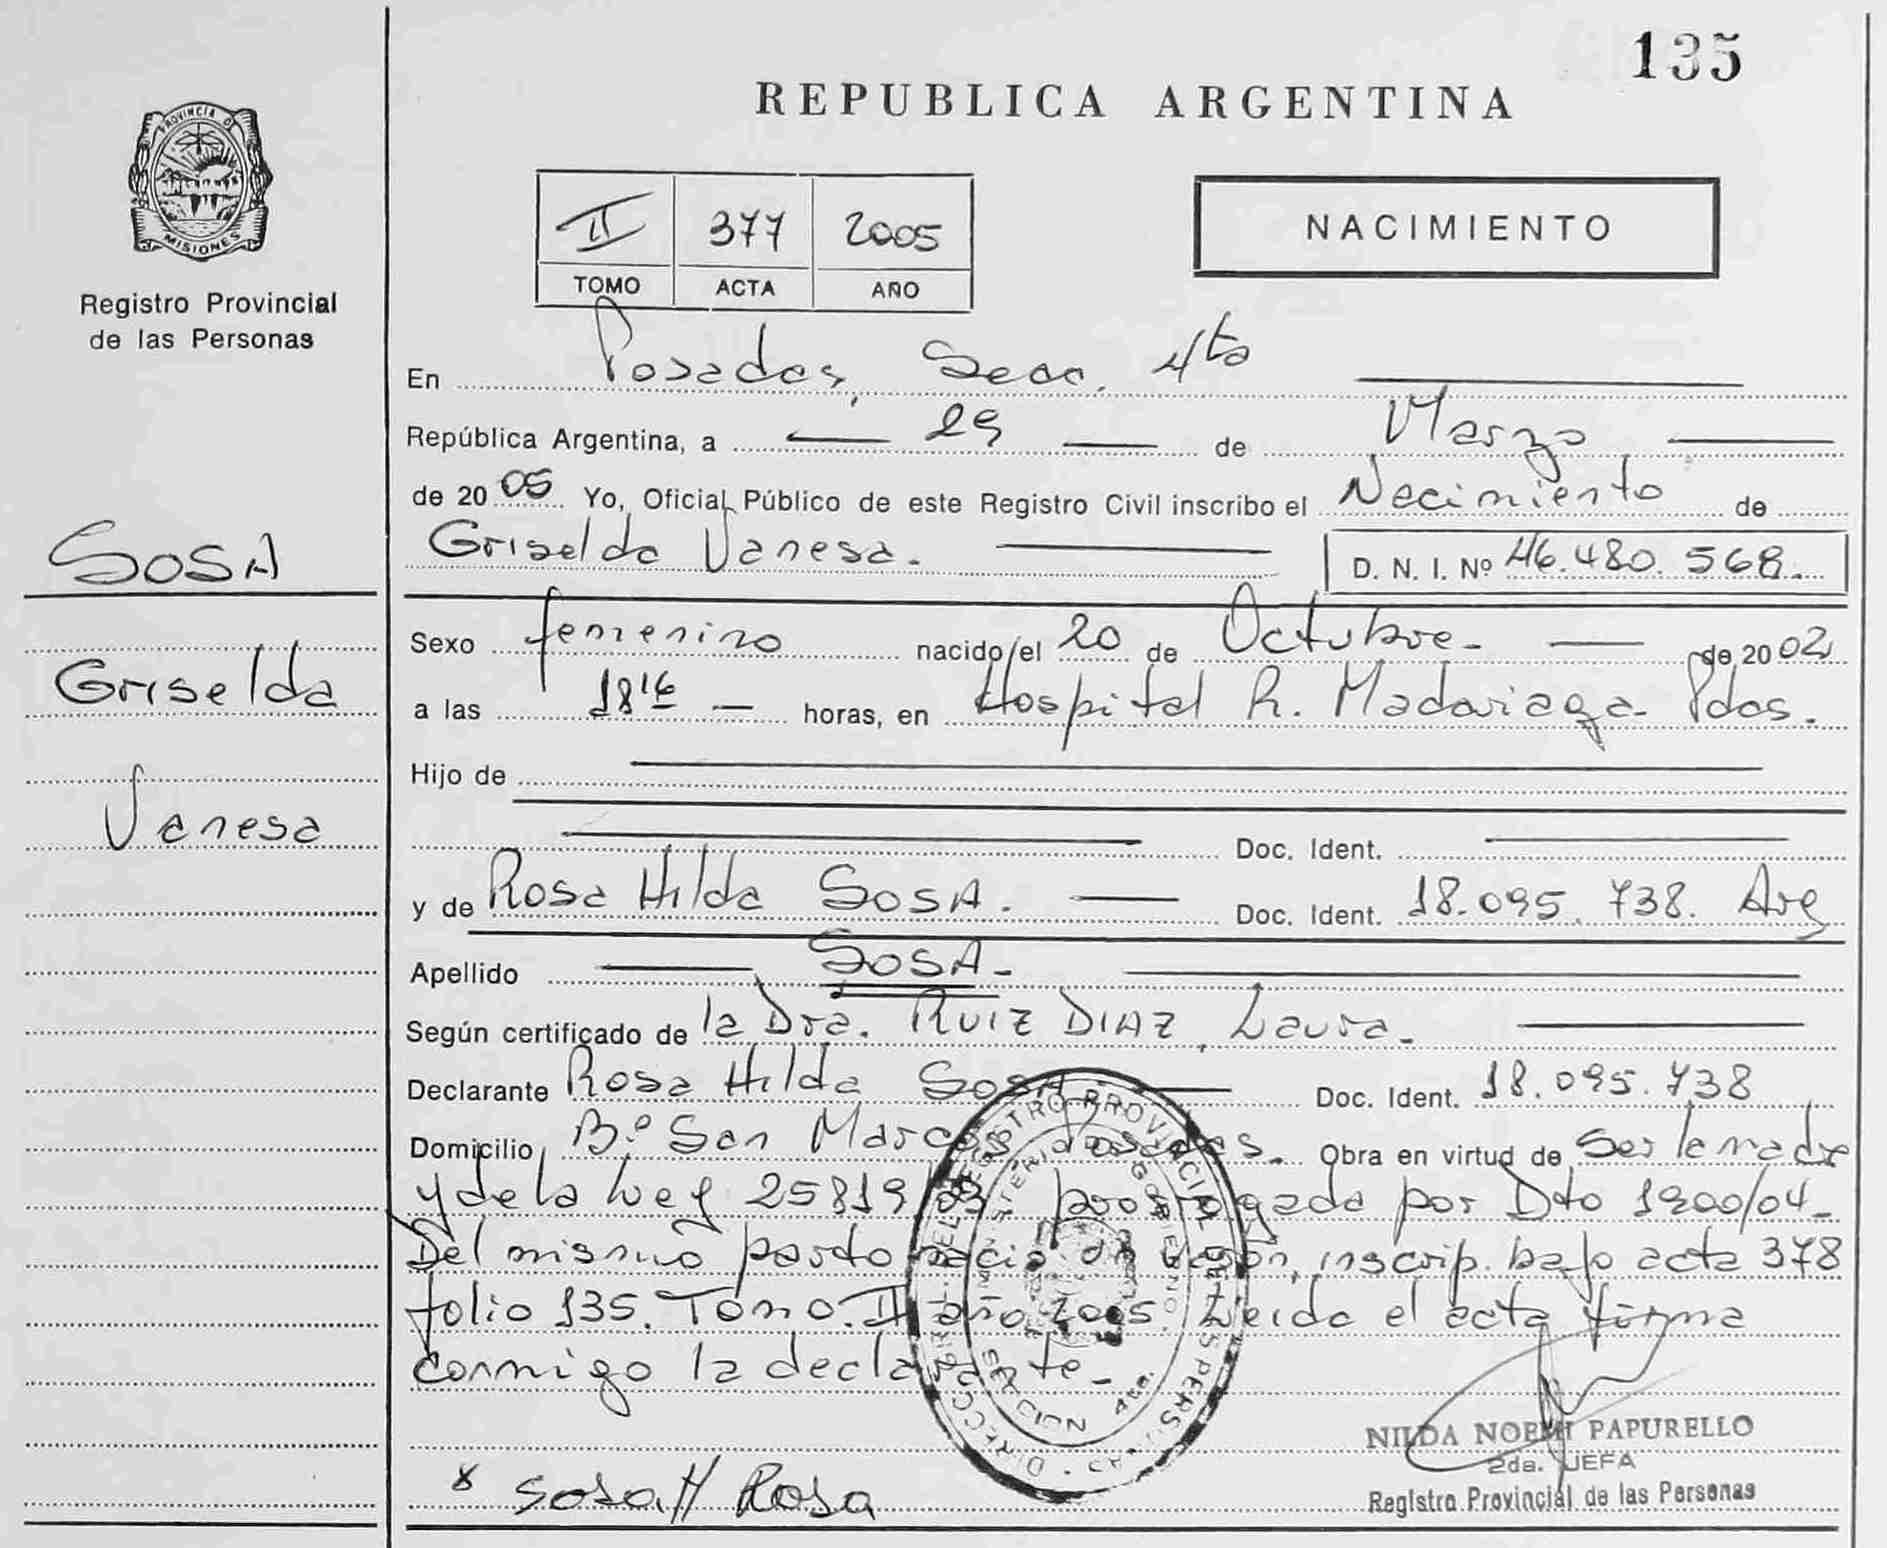 135
REPUBLICA ARGENTINA
PROVINCIA D
MISIONES
Registro Provincial
de las Personas
II 377 2005
TOMO ACTA AÑO
NACIMIENTO
En Posadas, Secc. 4to
República Argentina, a 29 de Marzo
de 20 05 Yo, Oficial Público de este Registro Civil inscribo el Nacimiento de
Griselda Vanesa. D. N. I. Nº 46.480.568.
SOSA
Griselda
Vanesa
Sexo femenino nacido/el 20 de Octubre- de 20 02
a las 18 16 horas, en Hospital R. Madariaga Pdas.
Hijo de
Doc. Ident.
y de Rosa Hilda SOSA. Doc. Ident. 18.095.738. Arg
Apellido SOSA-
Según certificado de la Dra. RUIZ DIAZ, Laura-
Declarante Rosa Hilda SOSA Doc. Ident. 18.095.738
Domicilio Bº San Marcos Posadas. Obra en virtud de Ser la madre
y de la Ley 25819/03 prorrogada por Dto 1900/04-
Del mismo parto nació un varón, inscrip. bajo acta 378
folio 135. Tomo. II año 2005. Leida el acta firma
conmigo la declarante-
DIRECCION DEL REGISTRO PROVINCIAL DE LAS PERSONAS
MINISTERIO DE GOBIERNO
SECCION 4ta.
NILDA NOEMI PAPURELLO
2da. JEFA
Registro Provincial de las Personas
x Sosa H Rosa